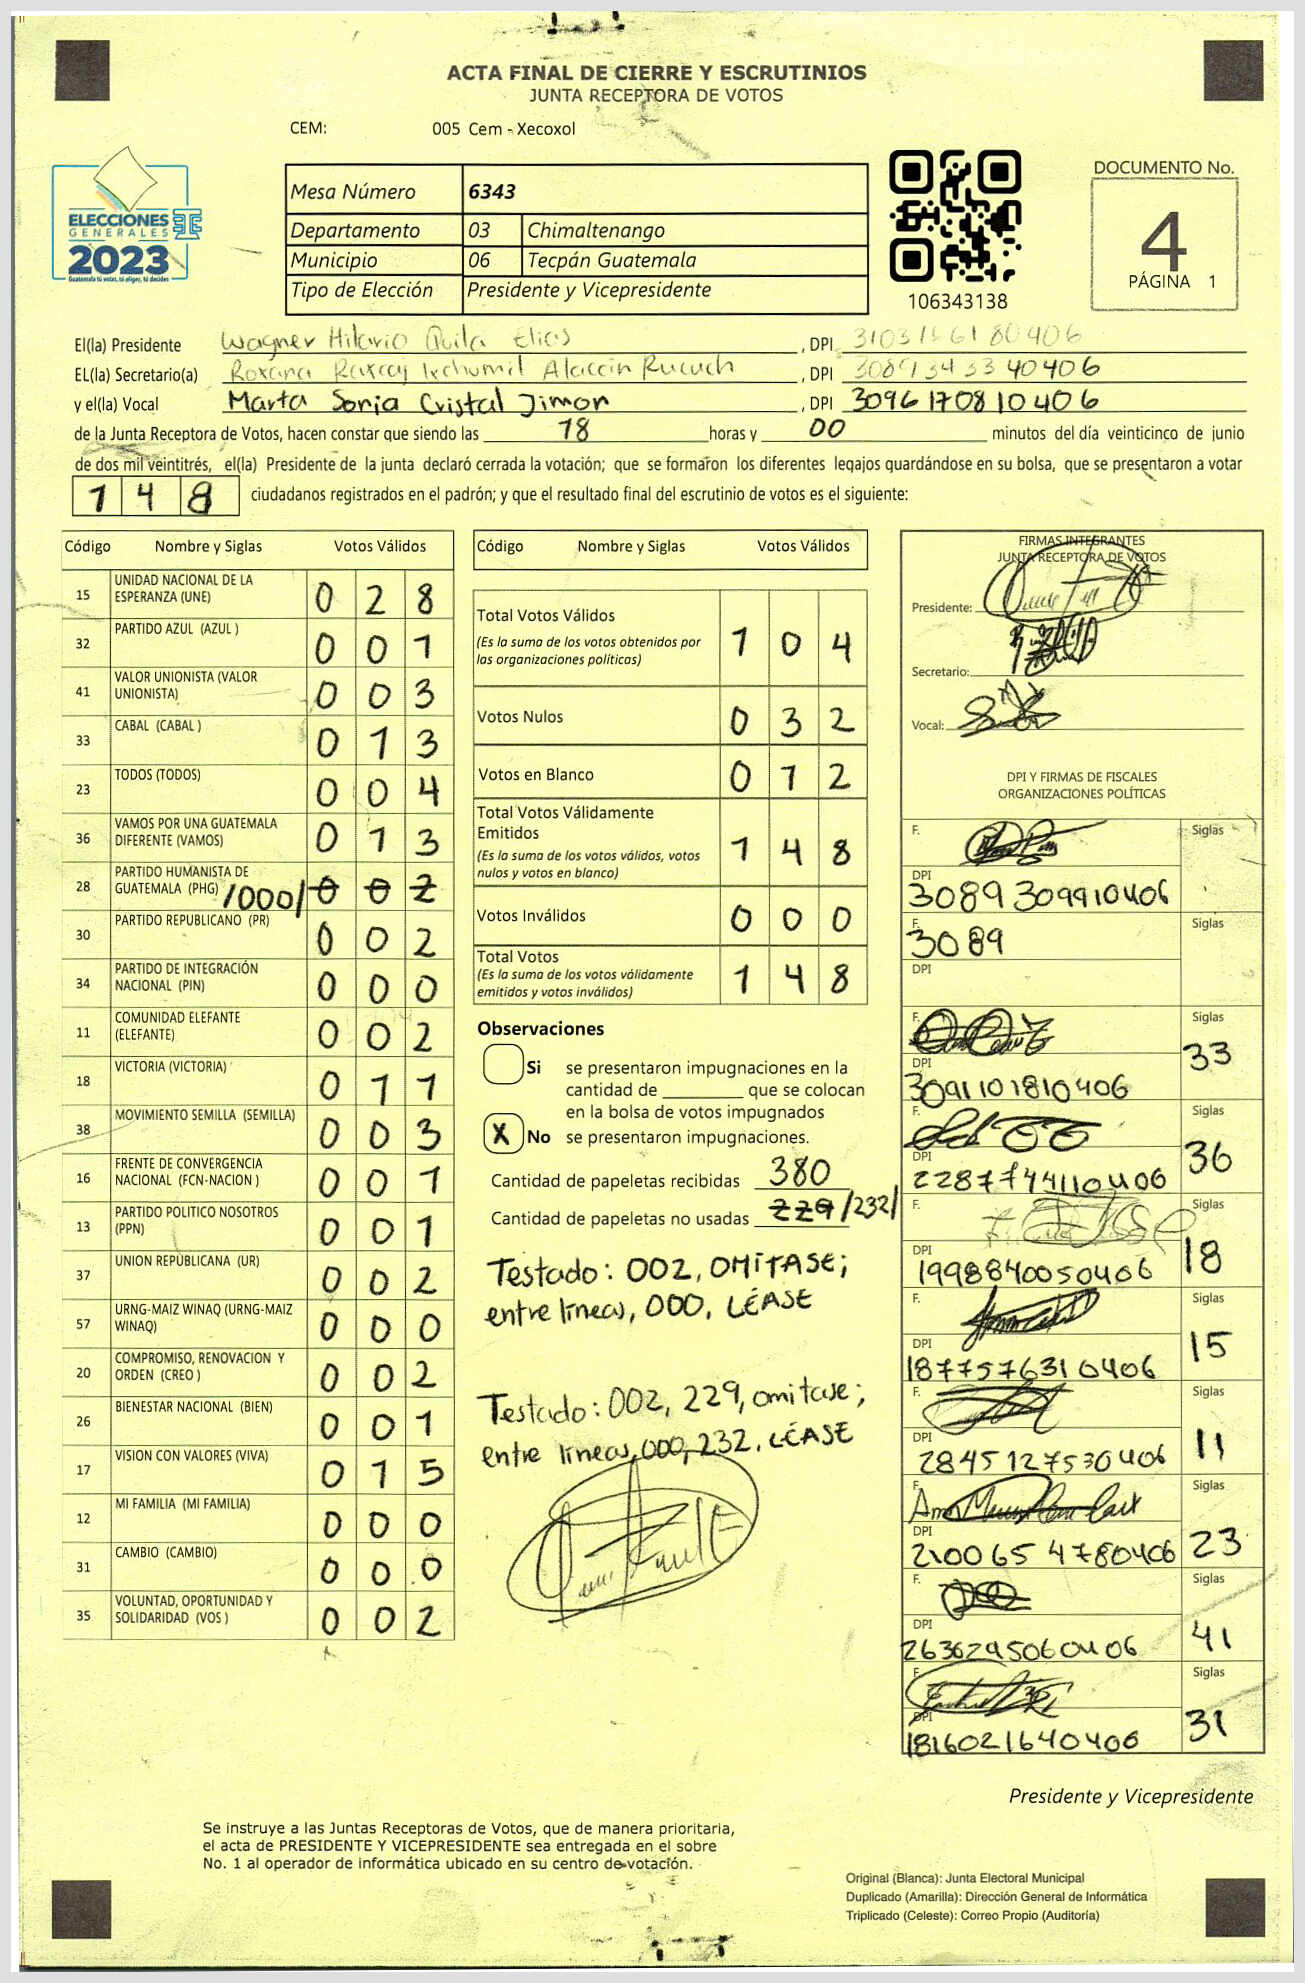 ACTA FINAL DE CIERRE Y ESCRUTINIOS
JUNTA RECEPTORA DE VOTOS
CEM: 005 Cem - Xecoxol
ELECCIONES
GENERALES
2023
Guatemala tú votas, tú eliges, tú decides
Mesa Número 6343
Departamento 03 Chimaltenango
Municipio 06 Tecpán Guatemala
Tipo de Elección Presidente y Vicepresidente
106343138
DOCUMENTO No.
4
PÁGINA 1
El(la) Presidente Wagner Hilario Quila Elias, DPI 3103156180406
EL(la) Secretario(a) Roxana Raxcaj Ixchumil Alaccin Rucuch, DPI 3089343340406
y el(la) Vocal Marta Sonia Cristal Jimon, DPI 3096170810406
de la Junta Receptora de Votos, hacen constar que siendo las 18 horas y 00 minutos del día veinticinco de junio
de dos mil veintitrés, el(la) Presidente de la junta declaró cerrada la votación; que se formaron los diferentes legajos guardándose en su bolsa, que se presentaron a votar
148 ciudadanos registrados en el padrón; y que el resultado final del escrutinio de votos es el siguiente:
Código Nombre y Siglas Votos Válidos
15 UNIDAD NACIONAL DE LA ESPERANZA (UNE) 0 2 8
32 PARTIDO AZUL (AZUL ) 0 0 1
41 VALOR UNIONISTA (VALOR UNIONISTA) 0 0 3
33 CABAL (CABAL ) 0 1 3
23 TODOS (TODOS) 0 0 4
36 VAMOS POR UNA GUATEMALA DIFERENTE (VAMOS) 0 1 3
28 PARTIDO HUMANISTA DE GUATEMALA (PHG) /000/ 0 0 2
30 PARTIDO REPUBLICANO (PR) 0 0 2
34 PARTIDO DE INTEGRACIÓN NACIONAL (PIN) 0 0 0
11 COMUNIDAD ELEFANTE (ELEFANTE) 0 0 2
18 VICTORIA (VICTORIA) 0 1 1
38 MOVIMIENTO SEMILLA (SEMILLA) 0 0 3
16 FRENTE DE CONVERGENCIA NACIONAL (FCN-NACION ) 0 0 1
13 PARTIDO POLITICO NOSOTROS (PPN) 0 0 1
37 UNION REPUBLICANA (UR) 0 0 2
57 URNG-MAIZ WINAQ (URNG-MAIZ WINAQ) 0 0 0
20 COMPROMISO, RENOVACION Y ORDEN (CREO ) 0 0 2
26 BIENESTAR NACIONAL (BIEN) 0 0 1
17 VISION CON VALORES (VIVA) 0 1 5
12 MI FAMILIA (MI FAMILIA) 0 0 0
31 CAMBIO (CAMBIO) 0 0 0
35 VOLUNTAD, OPORTUNIDAD Y SOLIDARIDAD (VOS ) 0 0 2
Código Nombre y Siglas Votos Válidos
Total Votos Válidos 1 0 4
(Es la suma de los votos obtenidos por
las organizaciones políticas)
Votos Nulos 0 3 2
Votos en Blanco 0 1 2
Total Votos Válidamente
Emitidos 1 4 8
(Es la suma de los votos válidos, votos
nulos y votos en blanco)
Votos Inválidos 0 0 0
Total Votos 1 4 8
(Es la suma de los votos válidamente
emitidos y votos inválidos)
Observaciones
Si se presentaron impugnaciones en la
cantidad de ________ que se colocan
en la bolsa de votos impugnados
X No se presentaron impugnaciones.
Cantidad de papeletas recibidas 380
Cantidad de papeletas no usadas 229 /232/
Testado: 002, OMITASE;
entre lineas, 000, LÉASE
Testado: 002, 229, omitase;
entre lineas, 000, 232, LÉASE
FIRMAS INTEGRANTES
JUNTA RECEPTORA DE VOTOS
Presidente:
Secretario:
Vocal:
DPI Y FIRMAS DE FISCALES
ORGANIZACIONES POLÍTICAS
F. Siglas
DPI
3089309910406
F. Siglas
3089
DPI
F. Siglas
33
DPI
3091101810406
F. Siglas
36
DPI
2287744110406
F. Siglas
18
DPI
1998840050406
F. Siglas
15
DPI
1877576310406
F. Siglas
11
DPI
2845127530406
F. Siglas
23
DPI
2100654780406
F. Siglas
41
DPI
2636295060406
F. Siglas
31
DPI
1816021640406
Presidente y Vicepresidente
Se instruye a las Juntas Receptoras de Votos, que de manera prioritaria,
el acta de PRESIDENTE Y VICEPRESIDENTE sea entregada en el sobre
No. 1 al operador de informática ubicado en su centro de votación.
Original (Blanca): Junta Electoral Municipal
Duplicado (Amarilla): Dirección General de Informática
Triplicado (Celeste): Correo Propio (Auditoría)